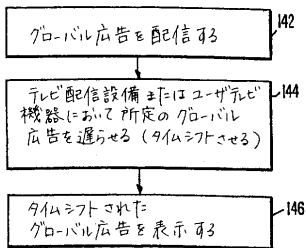 グローバル広告を配信する
142
テレビ配信設備またはユーザテレビ
機器において所定のグローバル
広告を遅らせる（タイムシフトさせる）
144
タイムシフトされた
グローバル広告を表示する
146